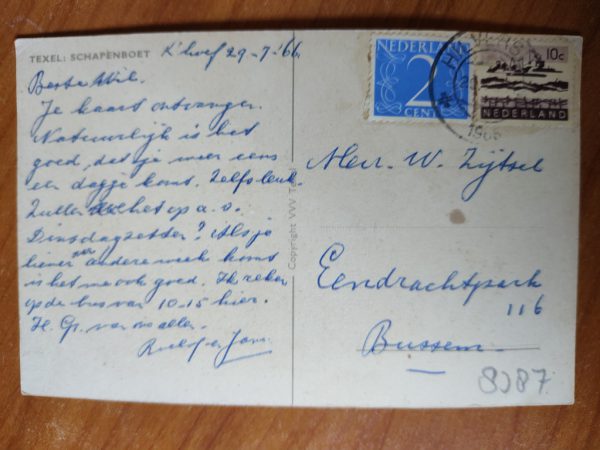 TEXEL: SCHAPENBOET
K'hoef 29-7-'66
Beste Wil.
Je kaart ontvangen.
Natuurlijk is het
goed, dat je weer eens
een dagje komt. Zelfs leuk.
Zullen we het op a.s.
Dinsdag zetten? Als je
liever een andere week komt
is het me ook goed. Ik reken
op de bus van 10.15 hier.
H. Gr. van ons allen.
Roelof en Jann
Copyright VVV Texel
NEDERLAND
2
CENT
10c
NEDERLAND
1966
Mevr. W. Zijtsel
Eendrachtpark
116
Bussem
8287